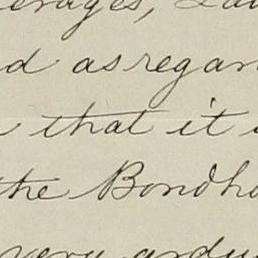 erages,
d as regar
that it
the Bondho
very ardu